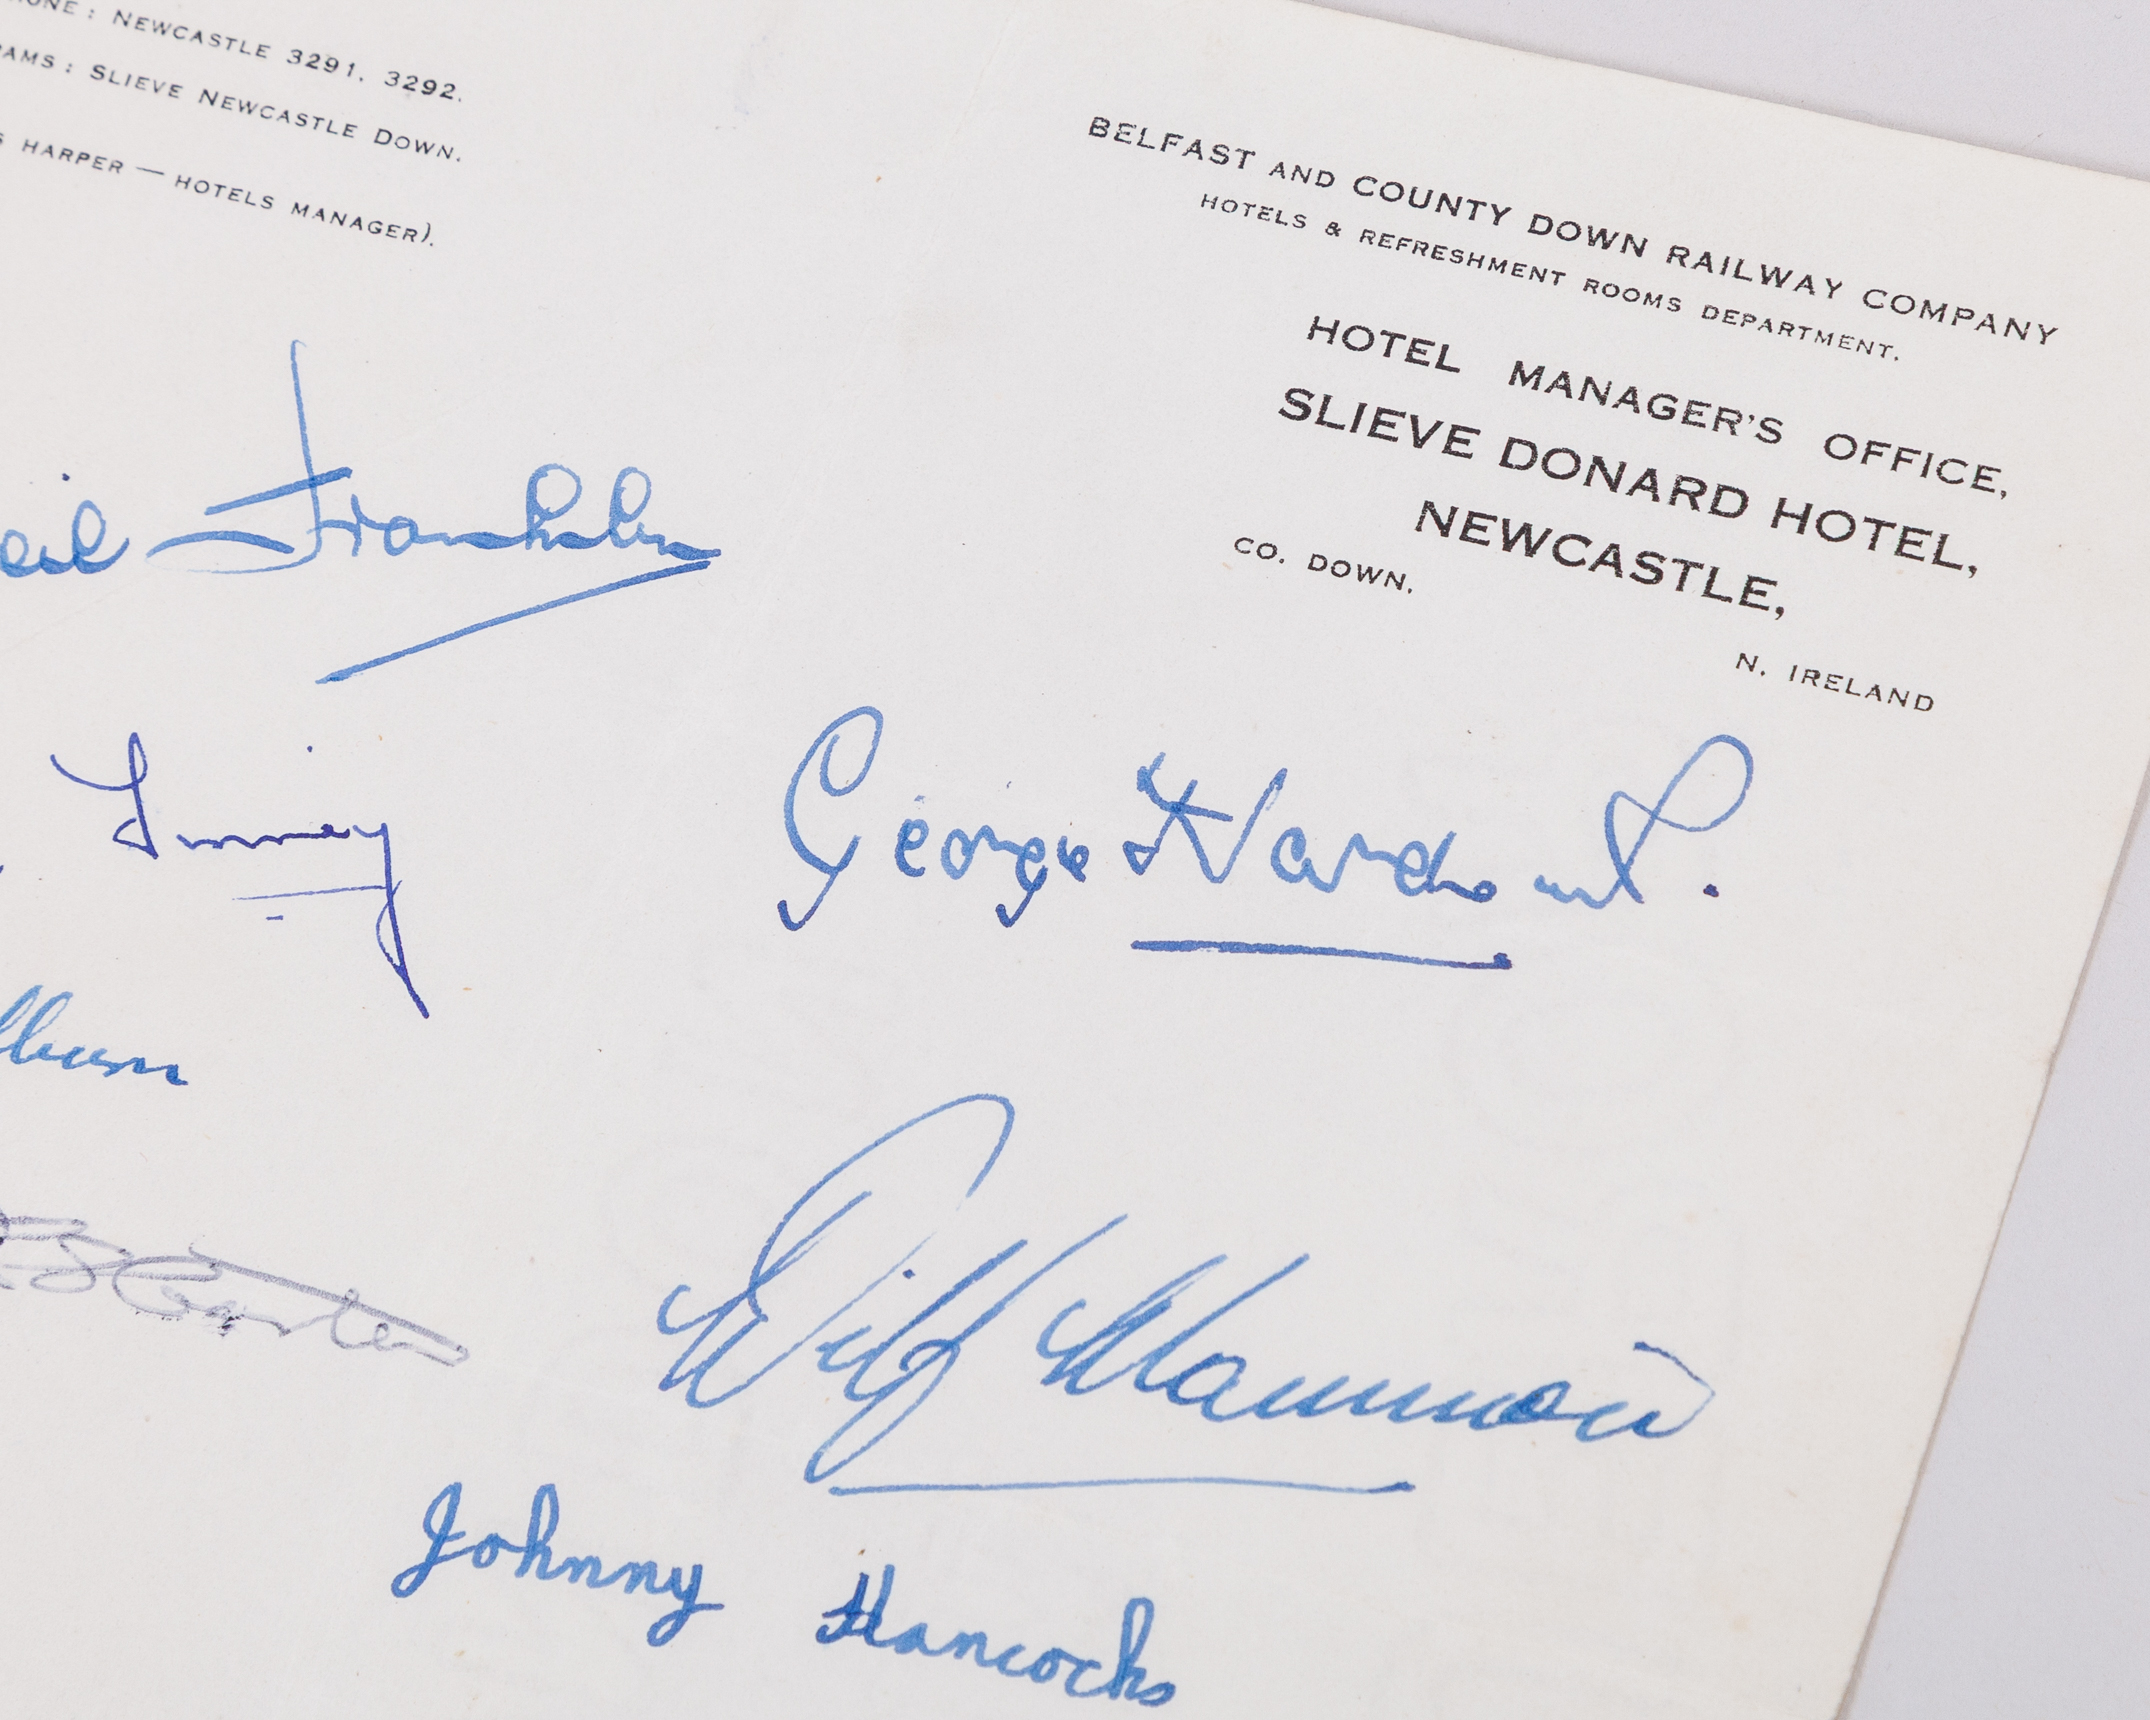 PHONE: NEWCASTLE 3291, 3292.
AMS: SLIEVE NEWCASTLE DOWN.
S HARPER — HOTELS MANAGER).
BELFAST AND COUNTY DOWN RAILWAY COMPANY
HOTELS & REFRESHMENT ROOMS DEPARTMENT.
HOTEL MANAGER'S OFFICE,
SLIEVE DONARD HOTEL,
NEWCASTLE,
CO. DOWN.
N. IRELAND
eil Franklin
Finney
George Hardwick.
Wilf Mannion
Johnny Hancocks